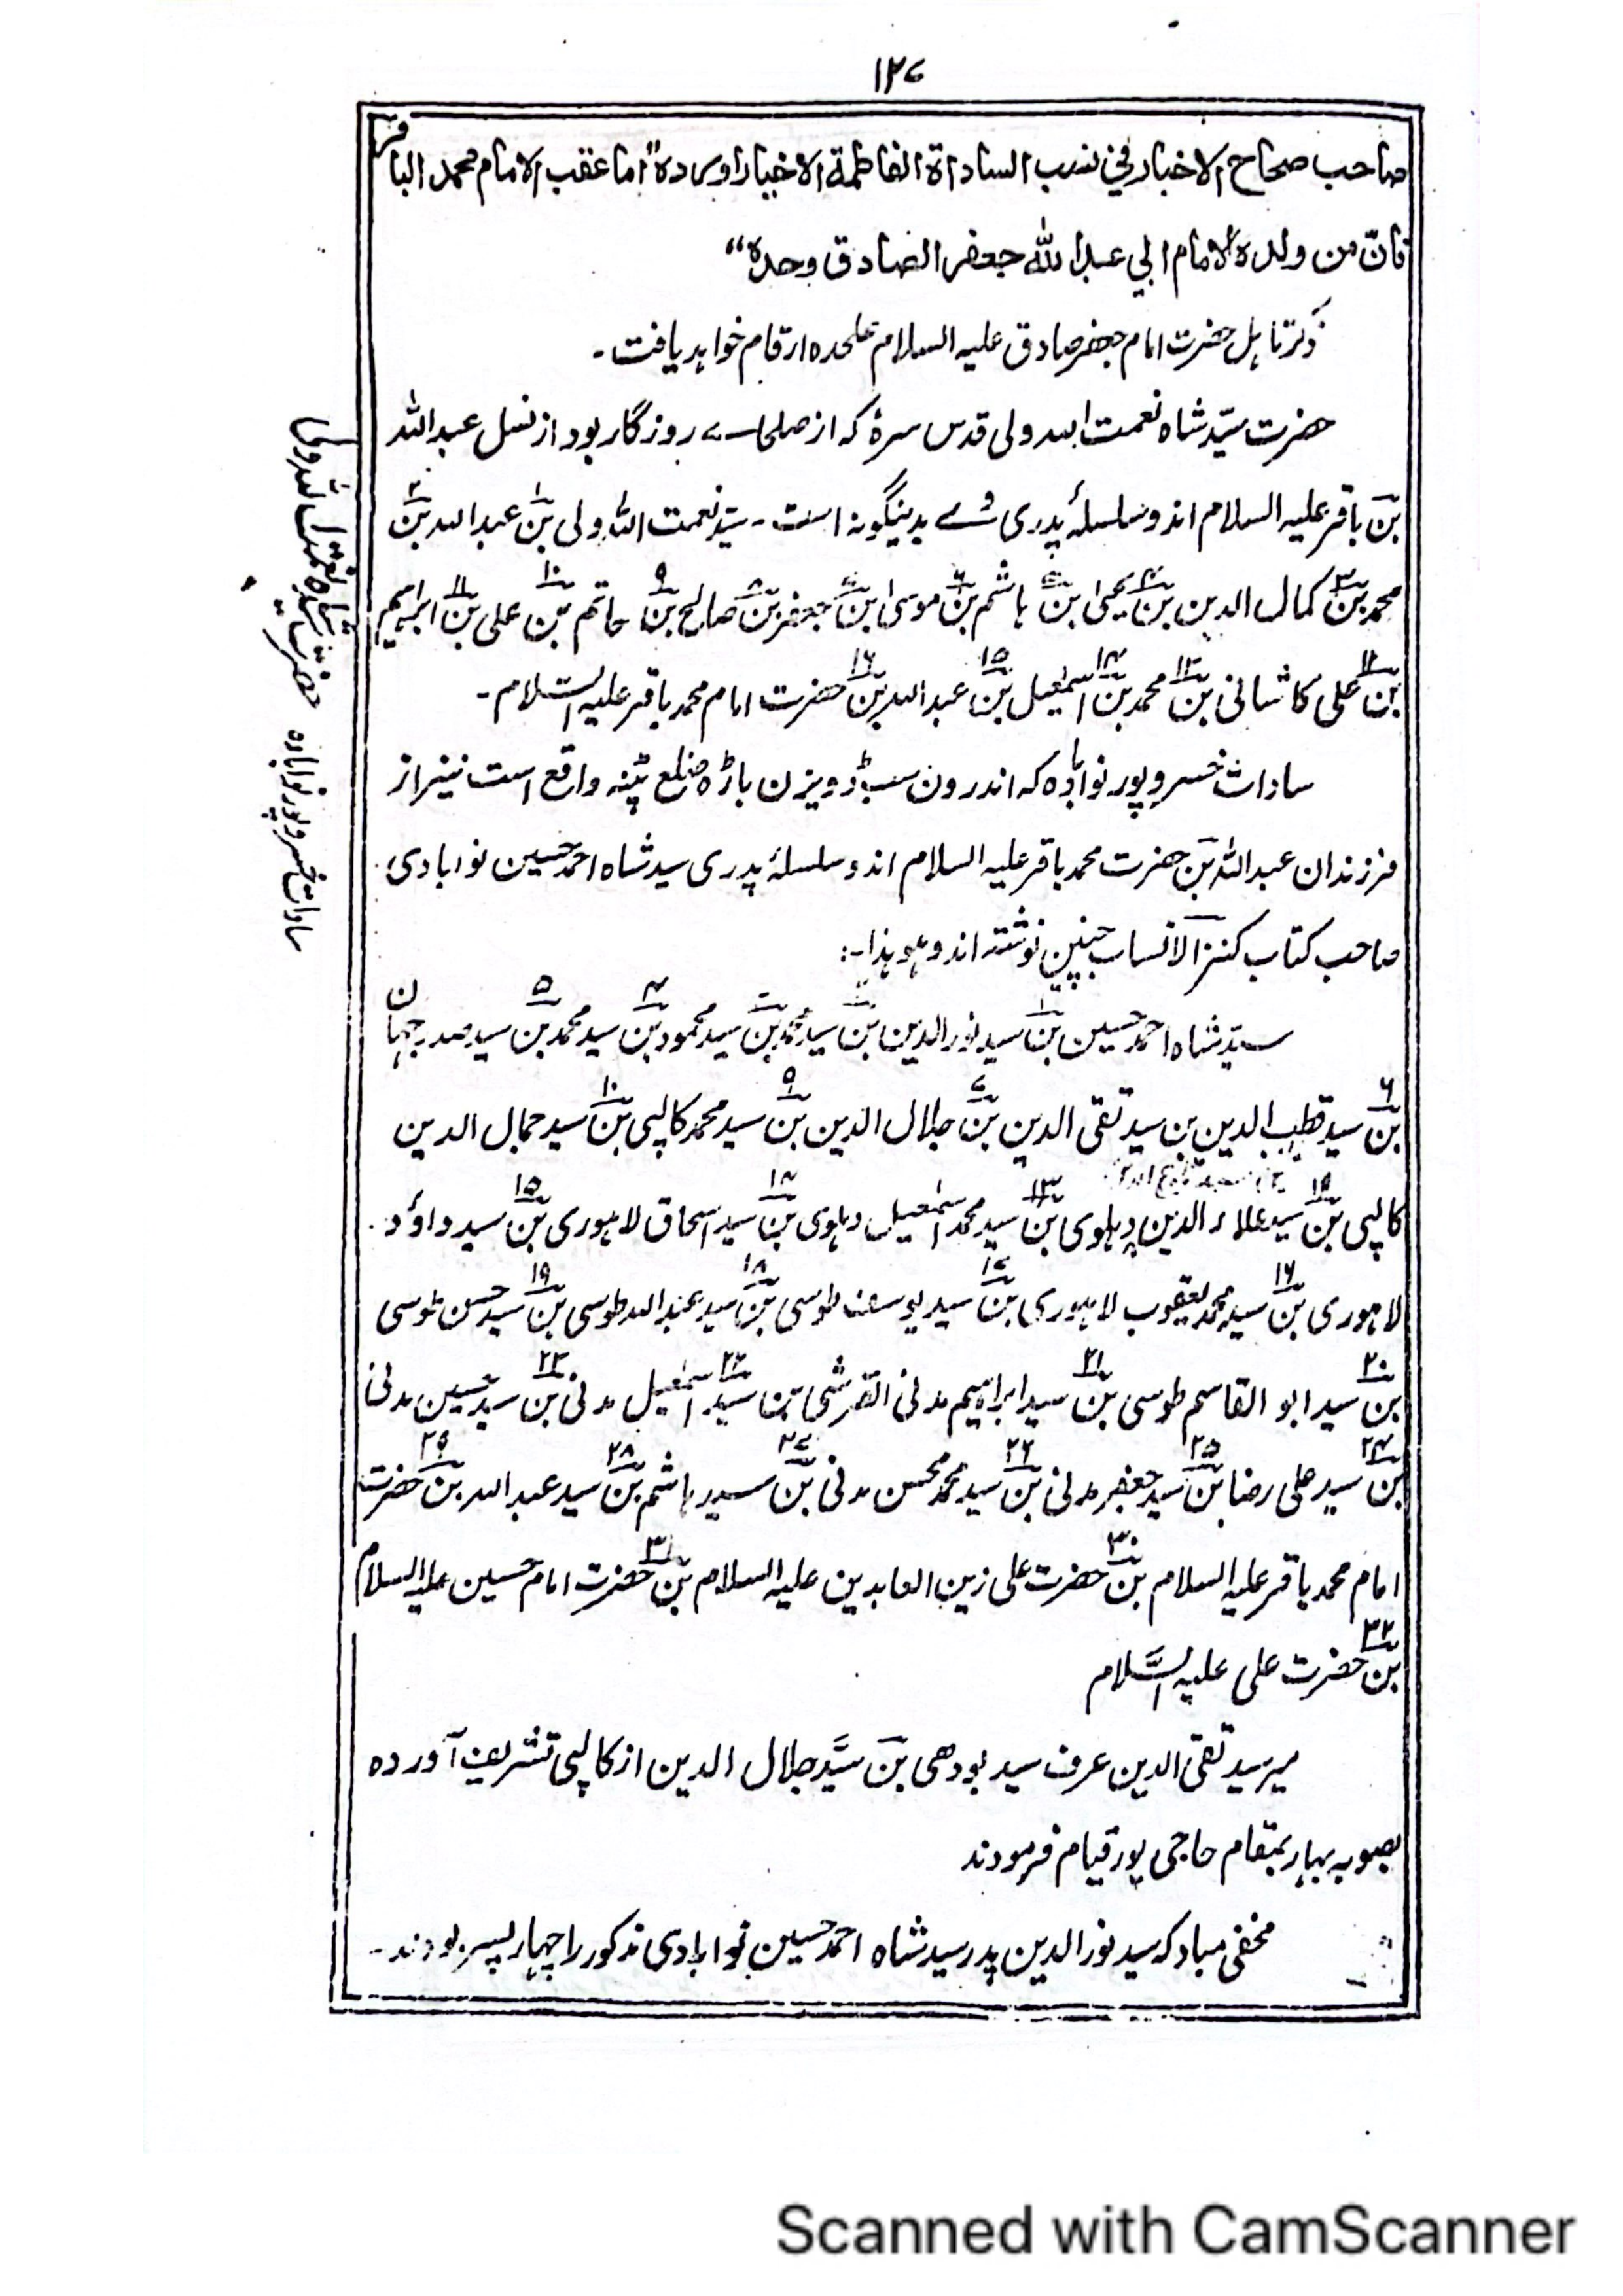 ۱۲۷
صاحب صحاح الاخبار فی نسب الساداة الفاطمة الاخیار اورده "اما عقب الامام محمد الباقر
فانّ من ولده الامام ابی عبد الله جعفر الصادق وحده"
ذکر تاہل حضرت امام جعفر صادق علیہ السلام علحدہ ارقام خواہد یافت ۔
حضرت سیّد شاہ نعمت اللہ ولی قدس سرہٗ کہ از صلحائے روزگار بود از نسل عبد اللہ
بن باقر علیہ السلام اند و سلسلۂ پدری وے بدینگونہ است ۔ سیّد نعمت اللہ ولی بن۱ عبد اللہ بن۲
محمد بن۳ کمال الدین بن۴ یحییٰ بن۵ ہاشم بن۶ موسیٰ بن۷ جعفر بن۸ صالح بن۹ حاتم بن۱۰ علی بن۱۱ ابراہیم
بن۱۲ علی کاشانی بن۱۳ محمد بن۱۴ اسمٰعیل بن۱۵ عبد اللہ بن۱۶ حضرت امام محمد باقر علیہ السّلام ۔
سادات خسروپور نوابادہ کہ اندرون سب ڈویزن باڑہ ضلع پٹنہ واقع است نیز از
فرزندان عبد اللہ بن حضرت محمد باقر علیہ السلام اند و سلسلۂ پدری سید شاہ احمد حسین نوابادی
صاحب کتاب کنز الانساب چنین نوشتہ اند وھو ہذا ۔:
سیّد شاہ احمد حسین بن۱ سید نور الدین بن۲ سید محمد بن۳ سید محمود بن۴ سید محمد بن۵ سید صدر جہان
بن۶ سید قطب الدین بن سید تقی الدین بن۷ جلال الدین بن۹ سید محمد کالپی بن۱۰ سید جمال الدین
کالپی بن سید علاء الدین دہلوی بن۱۳ سید محمد اسمٰعیل دہلوی بن۱۴ سید اسحاق لاہوری بن۱۵ سید داؤد
لاہوری بن۱۶ سید محمد یعقوب لاہوری بن۱۷ سید یوسف طوسی بن۱۸ سید عبد اللہ طوسی بن۱۹ سید حسن طوسی
بن۲۰ سید ابو القاسم طوسی بن۲۱ سید ابراہیم مدنی القرشی بن۲۲ سید اسمٰعیل مدنی بن۲۳ سید حسین مدنی
بن۲۴ سید علی رضا بن۲۵ سید جعفر مدنی بن۲۶ سید محمد محسن مدنی بن۲۷ سید ہاشم بن۲۸ سید عبد اللہ بن۲۹ حضرت
امام محمد باقر علیہ السلام بن۳۰ حضرت علی زین العابدین علیہ السلام بن۳۱ حضرت امام حسین علیہ السلام
بن۳۲ حضرت علی علیہ السَّلام
میر سید تقی الدین عرف سید بودھی بن سیَّد جلال الدین از کالپی تشریف آوردہ
بصوبہ بہار بمقام حاجی پور قیام فرمودند
مخفی مباد کہ سید نور الدین پدر سید شاہ احمد حسین نوابادی مذکور را چہار پسر بودند ۔
حضرت شاہ نعمت اللہ ولی
سادات خسروپور نوابادہ
Scanned with CamScanner